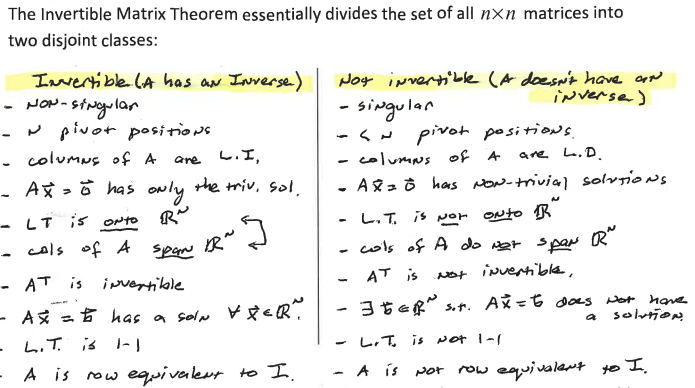 The Invertible Matrix Theorem essentially divides the set of all n×n matrices into
two disjoint classes:
Invertible (A has an Inverse)
- Non-singular
- N pivot positions
- columns of A are L.I.
- Ax⃗ = 0⃗ has only the triv. sol.
- LT is onto ℝᴺ
- cols of A span ℝᴺ
- Aᵀ is invertible
- Ax⃗ = b⃗ has a soln ∀ x⃗ ∈ ℝᴺ.
- L.T. is 1-1
- A is row equivalent to I.
Not invertible (A doesn't have an
inverse)
- singular
- < N pivot positions.
- columns of A are L.D.
- Ax⃗ = 0⃗ has non-trivial solutions
- L.T. is not onto ℝᴺ
- cols of A do not span ℝᴺ
- Aᵀ is not invertible,
- ∃ b⃗ ∈ ℝᴺ s.t. Ax⃗ = b⃗ does not have
a solution.
- L.T. is not 1-1
- A is not row equivalent to I.